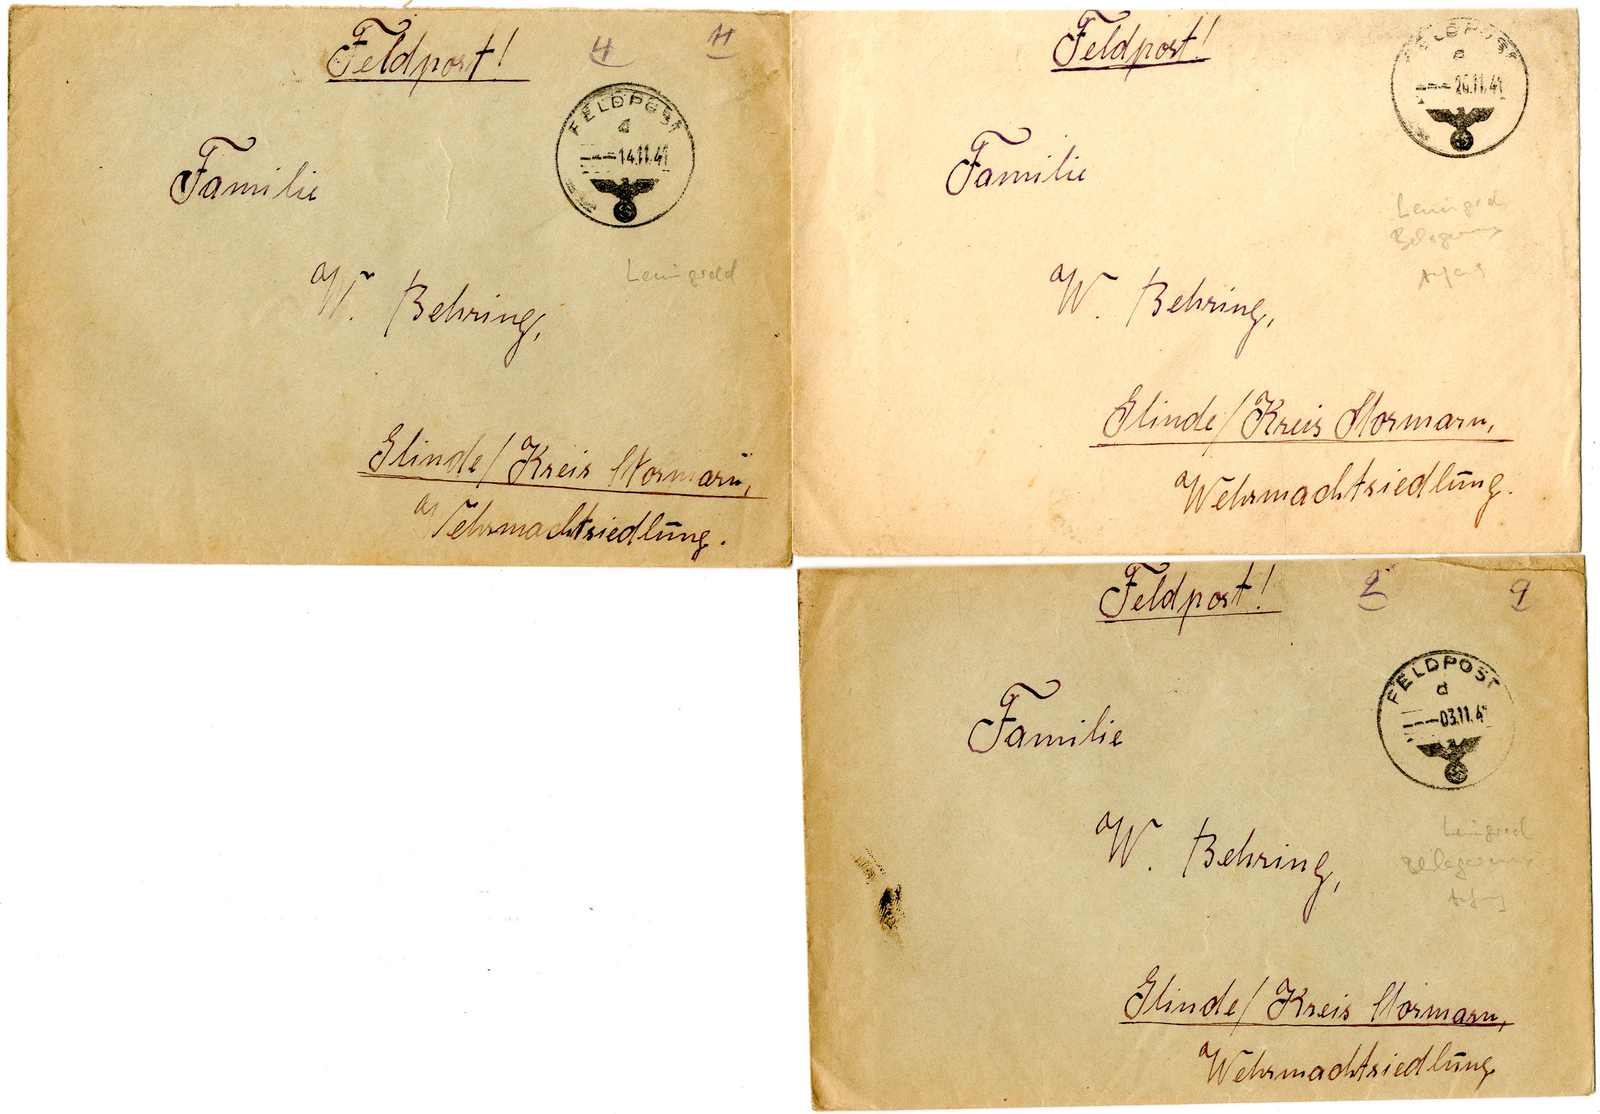 Feldpost!
4
4
FELDPOST
d
14.11.41
Familie
Leningrad
W. Behring,
Glinde/Kreis Stormarn,
Wehrmachtsiedlung.
Feldpost!
FELDPOST
26.11.41
Familie
Leningrad
Belagerung
Anfang
W. Behring,
Glinde/Kreis Stormarn,
Wehrmachtsiedlung.
Feldpost!
FELDPOST
d
03.11.4
Familie
Leningrad
Belagerung
Anfang
W. Behring,
Glinde/Kreis Stormarn,
Wehrmachtsiedlung